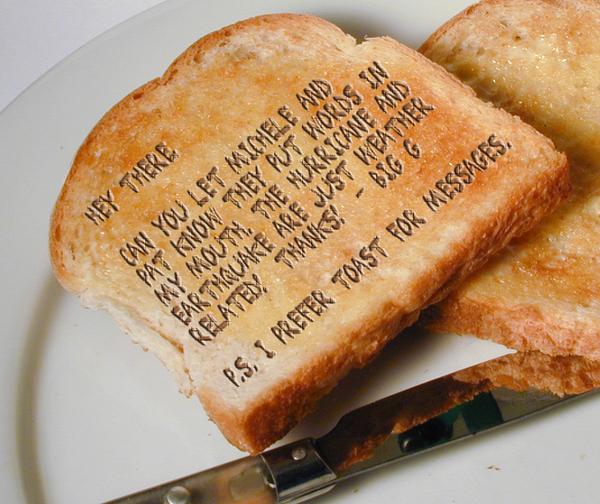 HEY THERE
CAN YOU LET MICHELE AND
PAT KNOW THEY PUT WORDS IN
MY MOUTH. THE HURRICANE AND
EARTHQUAKE ARE JUST WEATHER
RELATED! THANKS! - BIG G
P.S. I PREFER TOAST FOR MESSAGES.